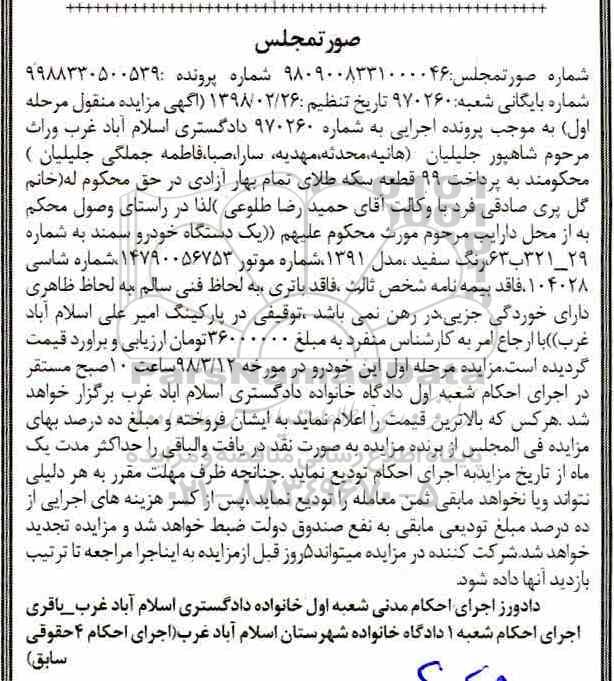 صورتمجلس
شماره صورتمجلس:۹۸۰۹۰۰۸۳۳۱۰۰۰۰۴۶ شماره پرونده :۹۹۸۸۳۳۰۵۰۰۵۳۹
شماره بایگانی شعبه:۹۷۰۲۶۰ تاریخ تنظیم :۱۳۹۸/۰۲/۲۶ (اگهی مزایده منقول مرحله
اول) به موجب پرونده اجرایی به شماره ۹۷۰۲۶۰ دادگستری اسلام آباد غرب وراث
مرحوم شاهپور جلیلیان (هانیه،محدثه،مهدیه، سارا،صبا،فاطمه جملگی جلیلیان )
محکومند به پرداخت ۹۹ قطعه سکه طلای تمام بهار آزادی در حق محکوم له(خانم
گل پری صادقی فرد با وکالت آقای حمید رضا طلوعی )لذا در راستای وصول محکم
به از محل دارایی مرحوم مورث محکوم علیهم ((یک دستگاه خودرو سمند به شماره
۲۹_۳۲۱ب۶۳،رنگ سفید ،مدل ۱۳۹۱،شماره موتور ۱۴۷۹۰۰۵۶۷۵۳،شماره شاسی
۱۰۴۰۲۸،فاقد بیمه نامه شخص ثالث ،فاقد باتری ،به لحاظ فنی سالم ،به لحاظ ظاهری
دارای خوردگی جزیی،در رهن نمی باشد ،توقیفی در پارکینگ امیر علی اسلام آباد
غرب))با ارجاع امر به کارشناس منفرد به مبلغ ۳۶۰۰۰۰۰۰تومان ارزیابی و براورد قیمت
گردیده است.مزایده مرحله اول این خودرو در مورخه ۹۸/۳/۱۲ساعت ۱۰صبح مستقر
در اجرای احکام شعبه اول دادگاه خانواده دادگستری اسلام اباد غرب برگزار خواهد
شد .هرکس که بالاترین قیمت را اعلام نماید به ایشان فروخته و مبلغ ده درصد بهای
مزایده فی المجلس از برنده مزایده به صورت نقد در یافت والباقی را حداکثر مدت یک
ماه از تاریخ مزایدبه اجرای احکام تودیع نماید .چنانچه ظرف مهلت مقرر به هر دلیلی
نتواند ویا نخواهد مابقی ثمن معامله را تودیع نماید،پس از کسر هزینه های اجرایی از
ده درصد مبلغ تودیعی مابقی به نفع صندوق دولت ضبط خواهد شد و مزایده تجدید
خواهد شد.شرکت کننده در مزایده میتواند۵روز قبل ازمزایده به اینجارا مراجعه تا ترتیب
بازدید آنها داده شود.
دادورز اجرای احکام مدنی شعبه اول خانواده دادگستری اسلام آباد غرب_باقری
اجرای احکام شعبه ۱ دادگاه خانواده شهرستان اسلام آباد غرب(اجرای احکام ۴حقوقی
سابق)